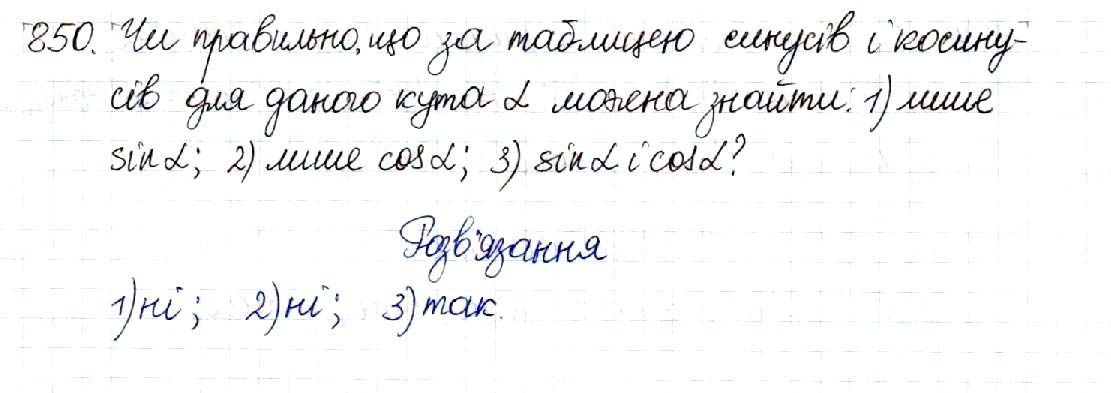 850. Чи правильно, що за таблицею синусів і косину-
сів для даного кута α можна знайти: 1) лише
sinα; 2) лише cosα; 3) sinα і cosα?
Розв'язання
1) ні; 2) ні; 3) так.